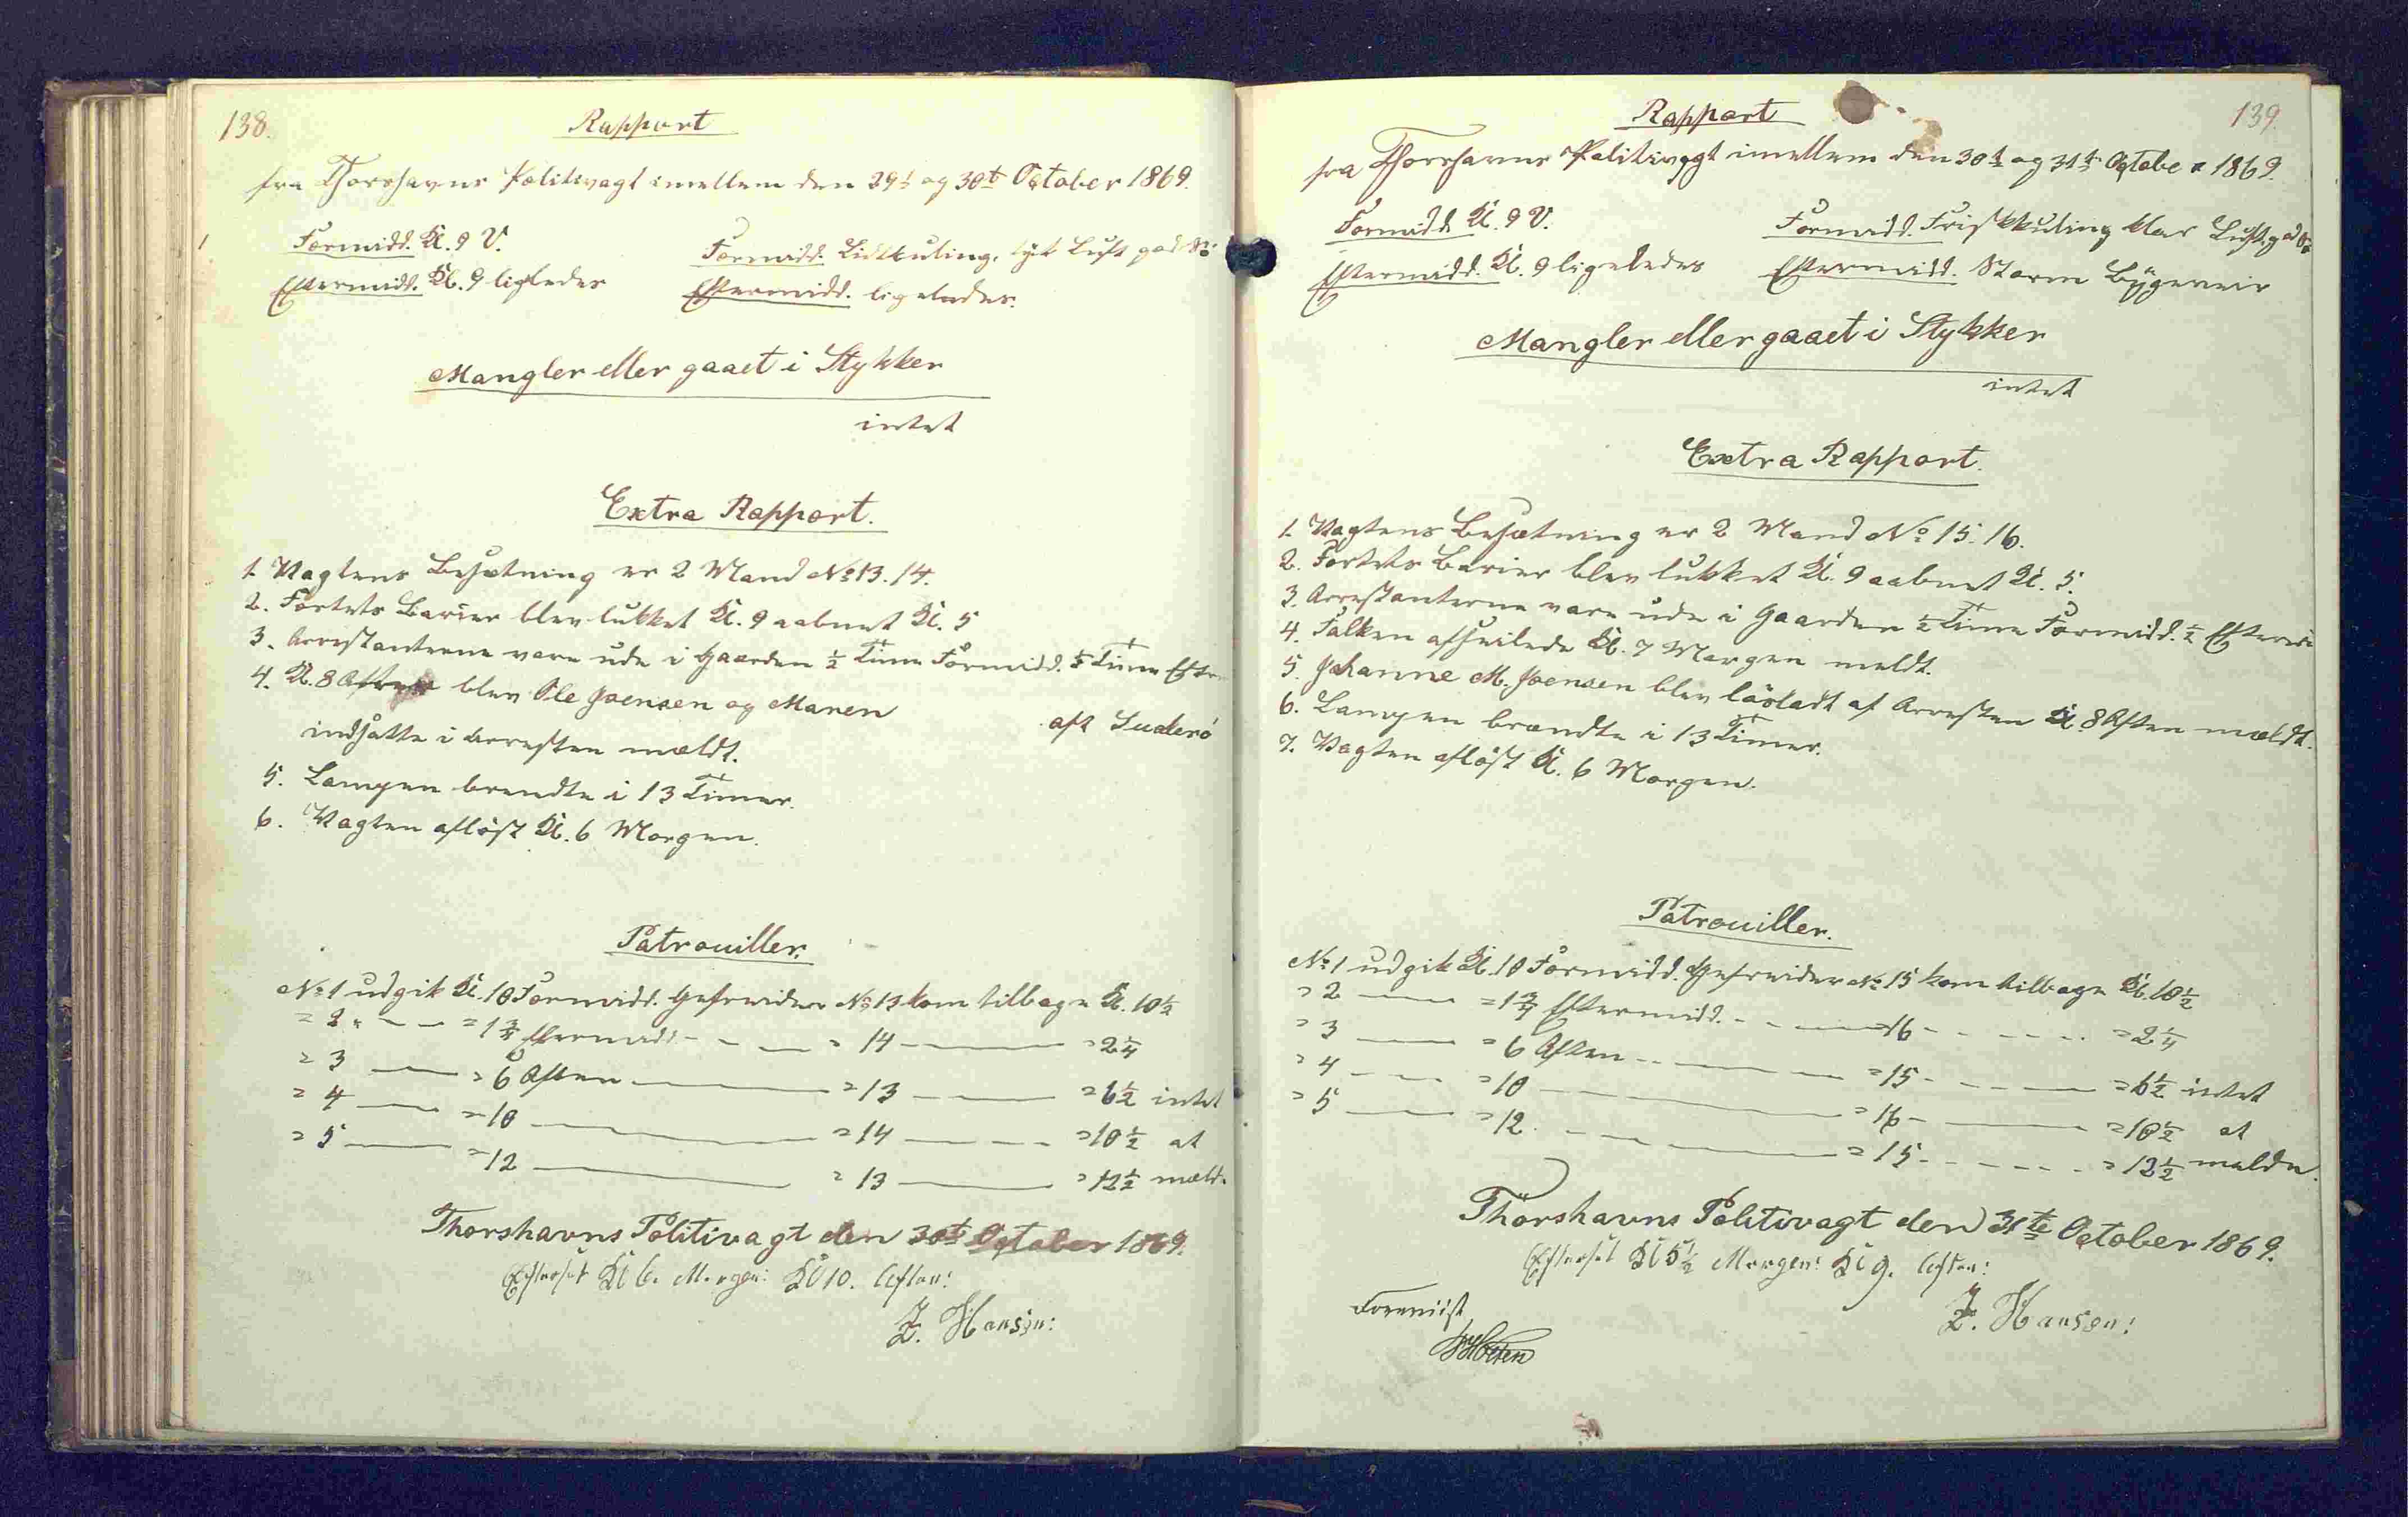 138.
Rapport
fra Thorshavns Politivagt imellem den 29t og 30te October 1869.
Formidd. Kl. 9 V.
Formidd. Lidtkuling, tyk Luft god Sö
Eftermidd. Kl. 9 ligeledes
Eftermidd. ligeledes.
Mangler eller gaaet i Stykker
intet
Extra Rapport.
1. Vagtens Besætning er 2 Mand No 13. 14.
2. Fortets Barier blev lukket Kl. 9 aabnet Kl. 5
3. Arrestanterne vare ude i Gaarden ½ Time Formidd. ½ Time Efter
4. Kl. 8 Aften blev Ole Joensen og Maren
aft Suderö
indsatte i Arresten mældt.
5. Lampen brendte i 13 Timer.
6. Vagten aflöst Kl. 6 Morgen.
Patrouiller.
No 1 udgik Kl. 10 Formidd. Gefreider No 13 kom tilbage Kl. 10½
= 2 — = 1¾ Eftermidd — = 14 — = 2¼
= 3 — = 6 Aften — = 13 — = 6½ intet
= 4 — = 10 — = 14 — = 10½ at
= 5 — = 12 — = 13 — = 12½ mæld
Thorshavns Politivagt den 30te October 1869.
Efterset Kl 6. Morgen: Kl 10. Aften:
Z. Hansen:
139.
Rapport
fra Thorshavns Politivagt imellem den 30te og 31te October 1869.
Formidd. Kl. 9 V.
Formidd. Friskkuling klar Luft god Sö
Eftermidd. Kl. 9 ligeledes
Eftermidd. Storm Bygeveir
Mangler eller gaaet i Stykker
intet
Extra Rapport.
1. Vagtens Besætning er 2 Mand No 15. 16.
2. Fortets Barier blev lukket Kl. 9 aabnet Kl. 5.
3. Arrestanterne vare ude i Gaarden ½ Time Formidd. ½ Eftermi
4. Falken afseilede Kl. 7 Morgen meldt.
5. Johanne M. Joensen blev lösladt af Arresten Kl. 8 Aften mældt.
6. Lampen brændte i 13 Timer.
7. Vagten aflöst Kl. 6 Morgen.
Patrouiller.
No 1 udgik Kl. 10 Formidd. Gefreider No 15 kom tilbage Kl. 10½
= 2 — = 1¾ Eftermidd. — = 16 — = 2¼
= 3 — = 6 Aften — = 15 — = 6½ intet
= 4 — = 10 — = 16 — = 10½ at
= 5 — = 12 — = 15 — = 12½ melde.
Thorshavns Politivagt den 31te October 1869.
Efterset Kl 5½ Morgen: Kl 9. Aften:
Z. Hansen:
Foreviist